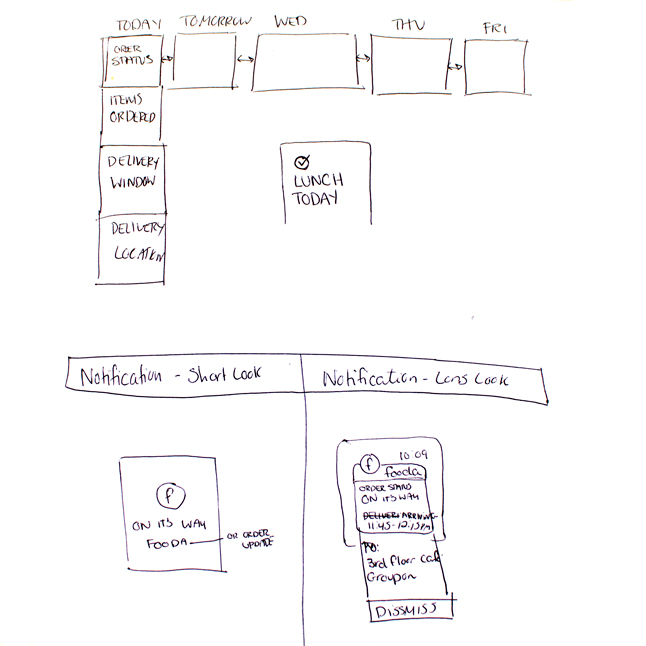 TODAY TOMORROW WED THU FRI
ORER
STATUS
ITEMS
ORDERED
DELIVERY
WINDOW
DELIVERY
LOCATION
LUNCH
TODAY
Notification - Short Look
Notification - Long Look
f
ON ITS WAY
FOODA
OR ORDER
UPDATE
10:09
f
fooda
ORDER STATUS
ON ITS WAY
DELIVERY ARRIVING
11.45-12.15PM
TO:
3rd floor Cafe
Groupon
DISSMISS